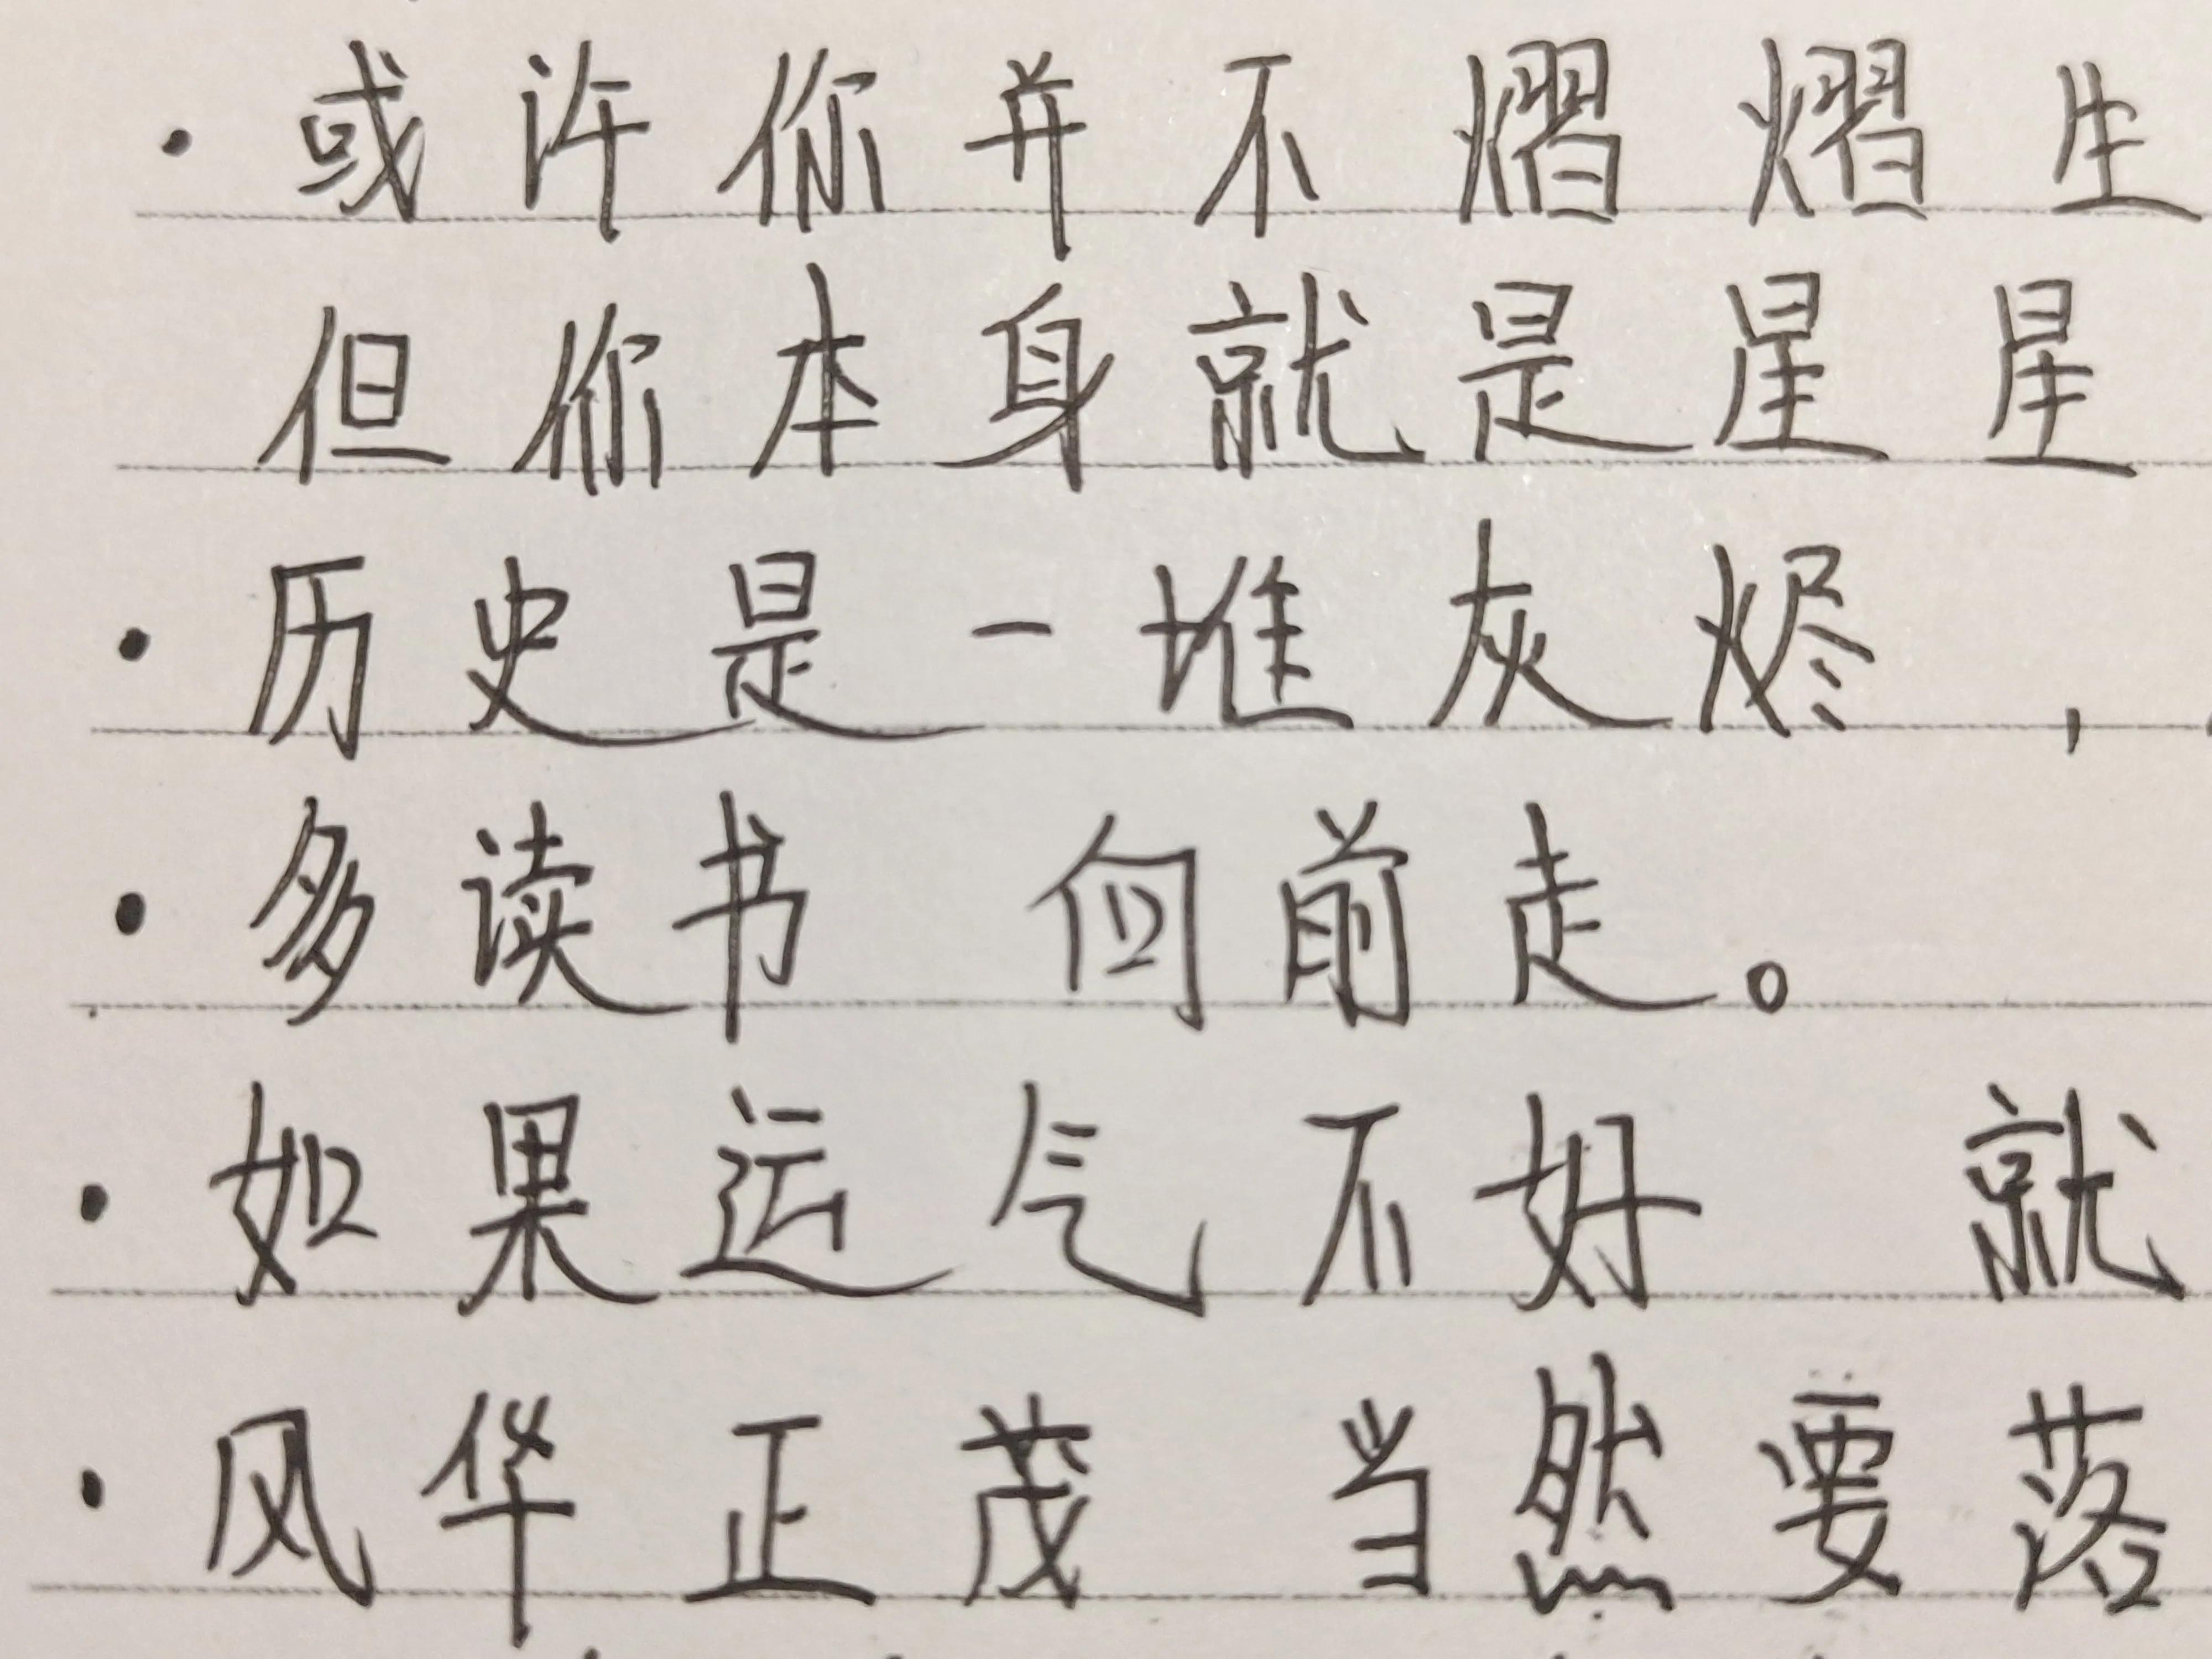 ·或许你并不熠熠生
但你本身就是星星
·历史是一堆灰烬，
·多读书 向前走。
·如果运气不好 就
·风华正茂 当然要落